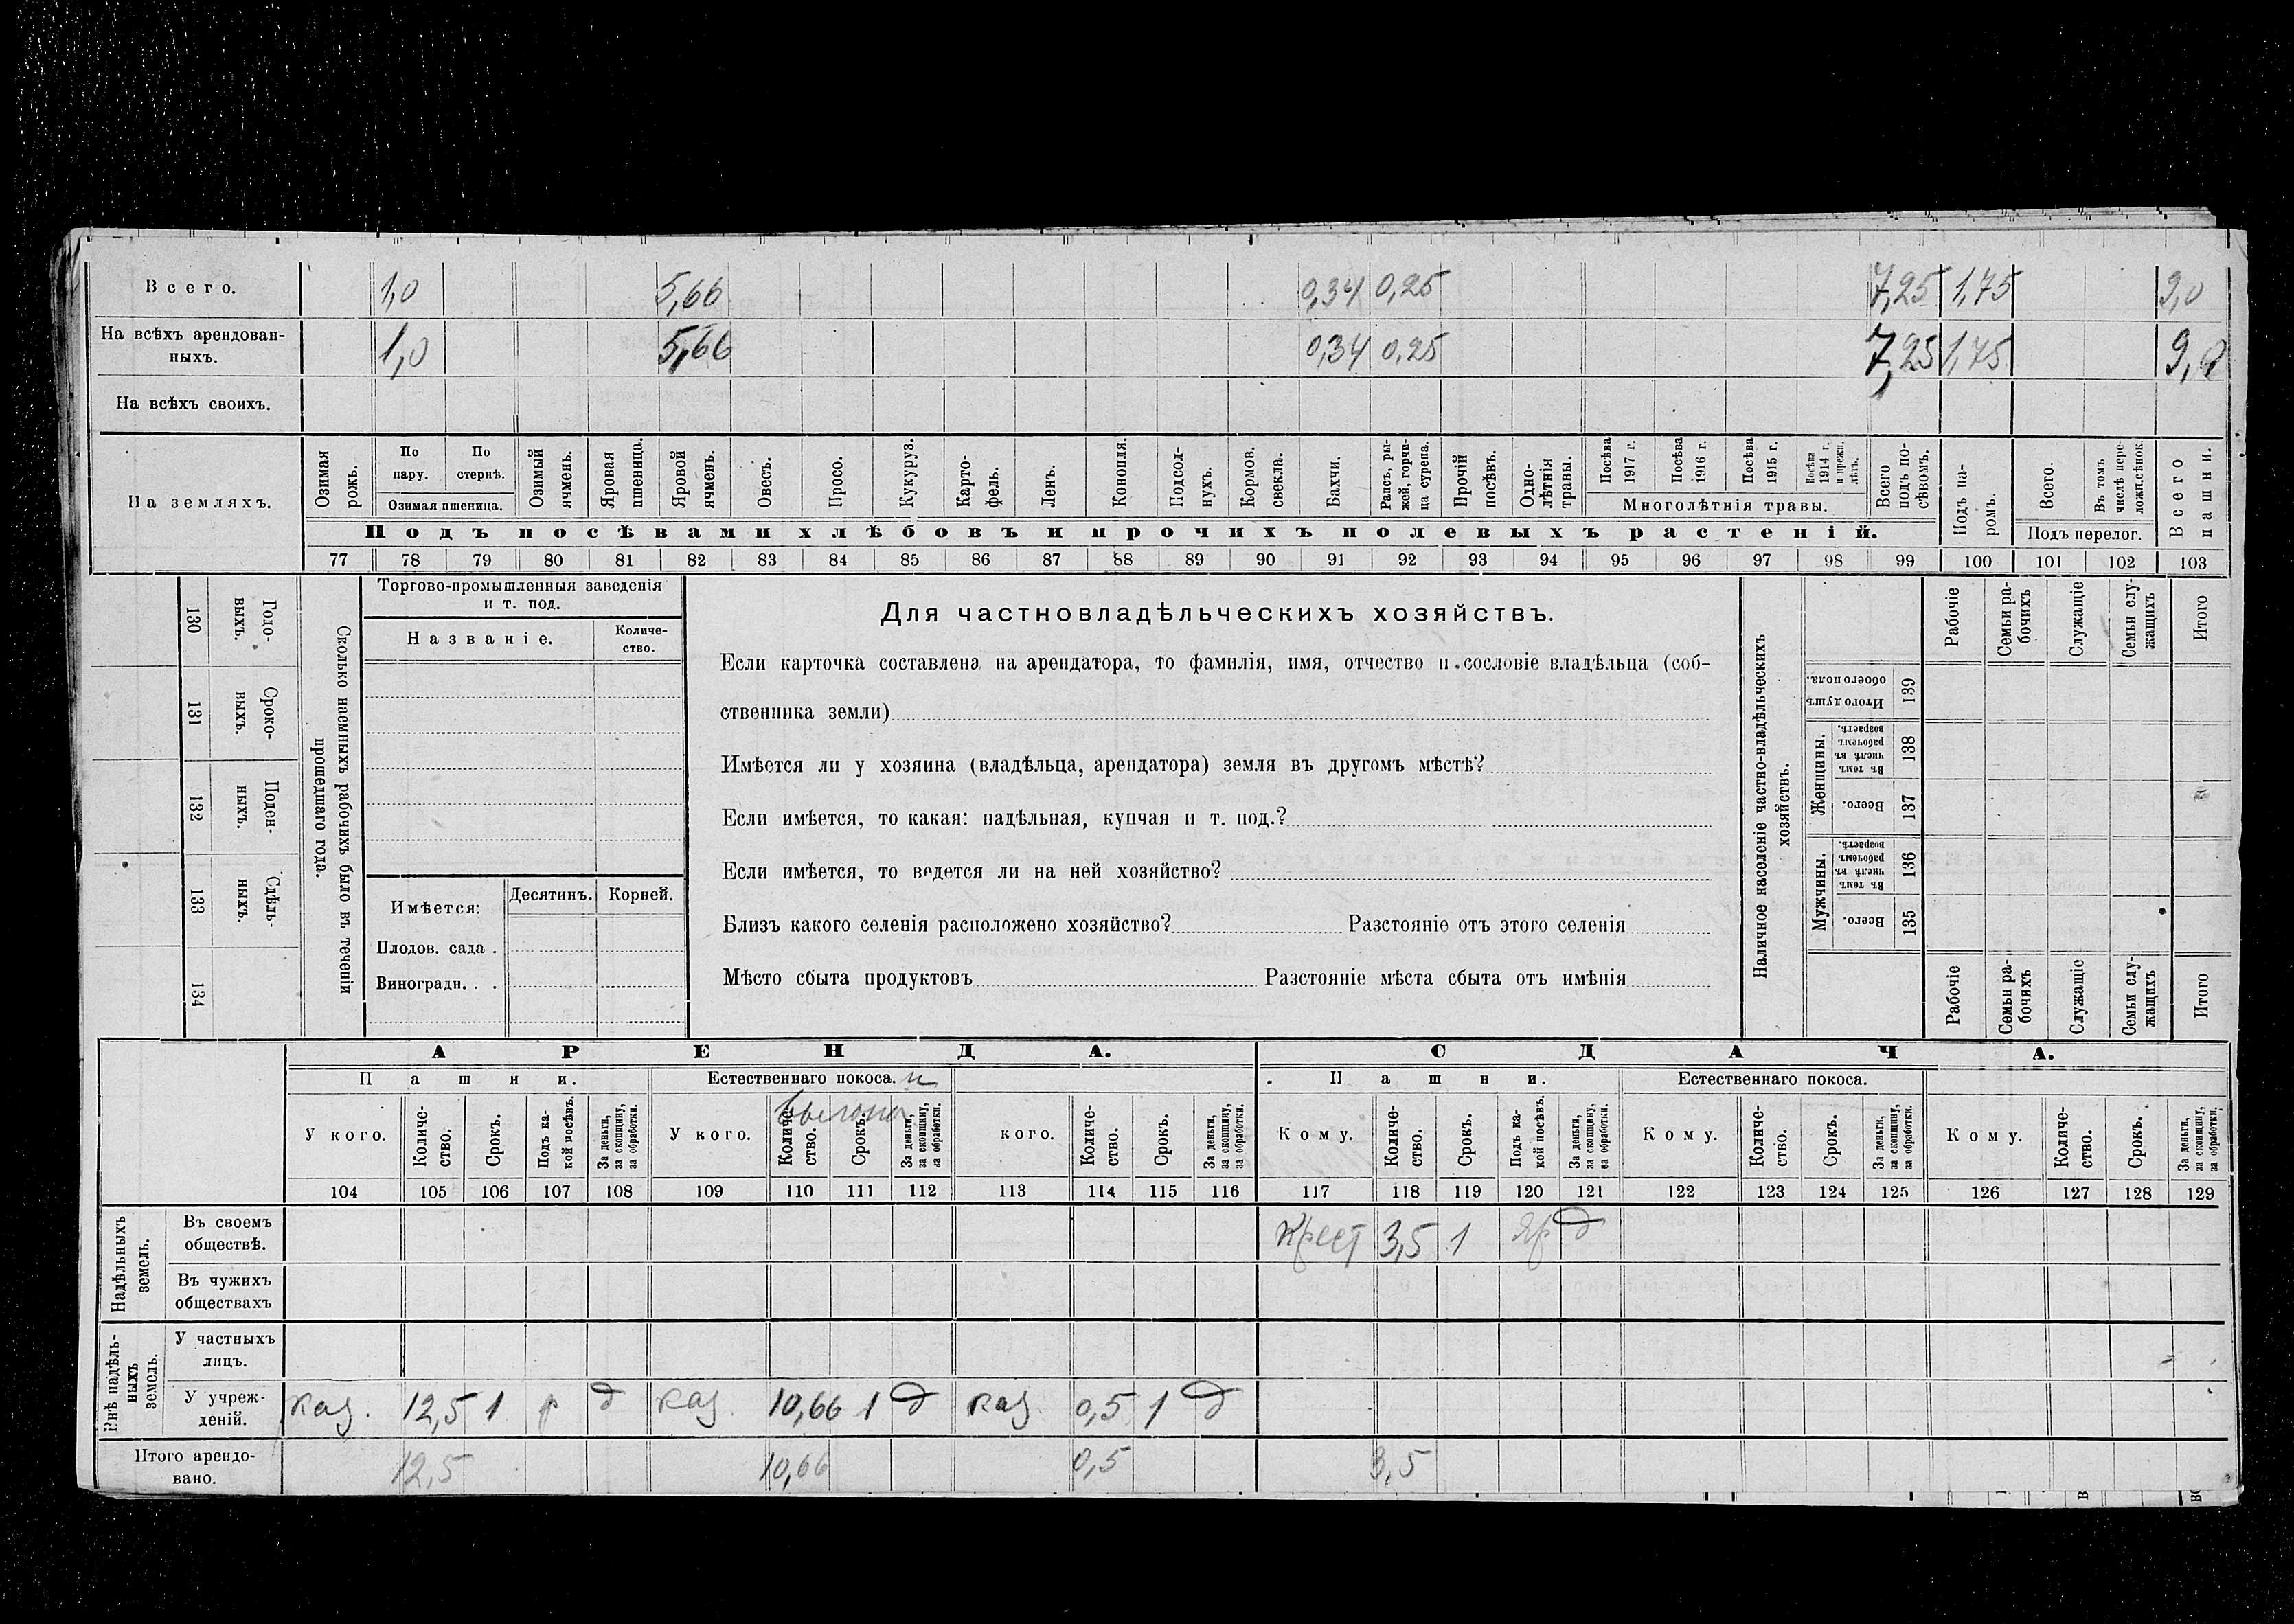 Всего. 1,0 5,66 0,34 0,25 7,25 1,75 9,0
На всѣхъ арендован-
ныхъ. 1,0 5,66 0,34 0,25 7,25 1,75 9,0
На всѣхъ своихъ.
На земляхъ.
Озимая рожь.
По пару.
По стернѣ.
Озимая пшеница.
Озимый ячмень.
Яровая пшеница.
Яровой ячмень.
Овесъ.
Просо.
Кукуруз.
Карто-
фель.
Ленъ.
Конопля.
Подсол-
нухъ.
Кормов. свекла.
Бахчи.
Рапсъ, ры-
жей, горчи-
ца сурепа.
Прочій посѣвъ.
Одно-
лѣтнія травы.
Посѣва 1917 г.
Посѣва 1916 г.
Посѣва 1915 г.
Посѣва 1914 г. и прежн. лѣтъ.
Многолѣтнія травы.
Всего подъ по-
сѣвомъ.
Подъ па-
ромъ.
Всего.
Въ томъ числѣ пере-
ложн. сѣнок.
Подъ перелог.
Всего пашни.
Подъ посѣвами хлѣбовъ и прочихъ полевыхъ растеній.
77 78 79 80 81 82 83 84 85 86 87 88 89 90 91 92 93 94 95 96 97 98 99 100 101 102 103
130 Годо-
выхъ.
131 Сроко-
выхъ.
132 Поден-
ныхъ.
133 Сдѣль-
ныхъ.
134
Сколько наемныхъ рабочихъ было въ теченіи
прошедшаго года.
Торгово-промышленныя заведенія
и т. под.
Названіе.
Количе-
ство.
Имѣется:
Десятинъ. Корней.
Плодов. сада .
Виноградн. . .
Для частновладѣльческихъ хозяйствъ.
Если карточка составлена на арендатора, то фамилія, имя, отчество и сословіе владѣльца (соб-
ственника земли)
Имѣется ли у хозяина (владѣльца, арендатора) земля въ другомъ мѣстѣ?
Если имѣется, то какая: надѣльная, купчая и т. под.?
Если имѣется, то ведется ли на ней хозяйство?
Близъ какого селенія расположено хозяйство? Разстояніе отъ этого селенія
Мѣсто сбыта продуктовъ Разстояніе мѣста сбыта отъ имѣнія
Наличное населеніе частно-владѣльческихъ
хозяйствъ.
Рабочіе
Семьи ра-
бочихъ
Служащіе
Семьи слу-
жащихъ
Итого
Итого душъ обоего пола. 139
Женщины.
Въ томъ числѣ въ рабочемъ возрастѣ. 138
Всего. 137
Мужчины.
Въ томъ числѣ въ рабочемъ возрастѣ. 136
Всего. 135
Рабочіе
Семьи ра-
бочихъ
Служащіе
Семьи слу-
жащихъ
Итого
АРЕНДА. СДАЧА.
Пашни. Естественнаго покоса. и Пашни. Естественнаго покоса.
выгона
У кого. Количе-
ство. Срокъ. Подъ ка-
кой посѣвъ. За деньги, за скопщину, за обработки.
У кого. Количе-
ство. Срокъ. За деньги, за скопщину, за обработки.
кого. Количе-
ство. Срокъ. За деньги, за скопщину, за обработки.
Кому. Количе-
ство. Срокъ. Подъ ка-
кой посѣвъ. За деньги, за скопщину, за обработки.
Кому. Количе-
ство. Срокъ. За деньги, за скопщину, за обработки.
Кому. Количе-
ство. Срокъ. За деньги, за скопщину, за обработки.
104 105 106 107 108 109 110 111 112 113 114 115 116 117 118 119 120 121 122 123 124 125 126 127 128 129
Надѣльныхъ
земель.
Въ своемъ
обществѣ. Крест 3,5 1 Яр д
Въ чужихъ
обществахъ
Внѣ надѣль-
ныхъ
земель.
У частныхъ
лицъ.
У учреж-
деній. Каз. 12,5 1 р д каз 10,66 1 д каз 0,5 1 д
Итого арендо-
вано. 12,5 10,66 0,5 3,5